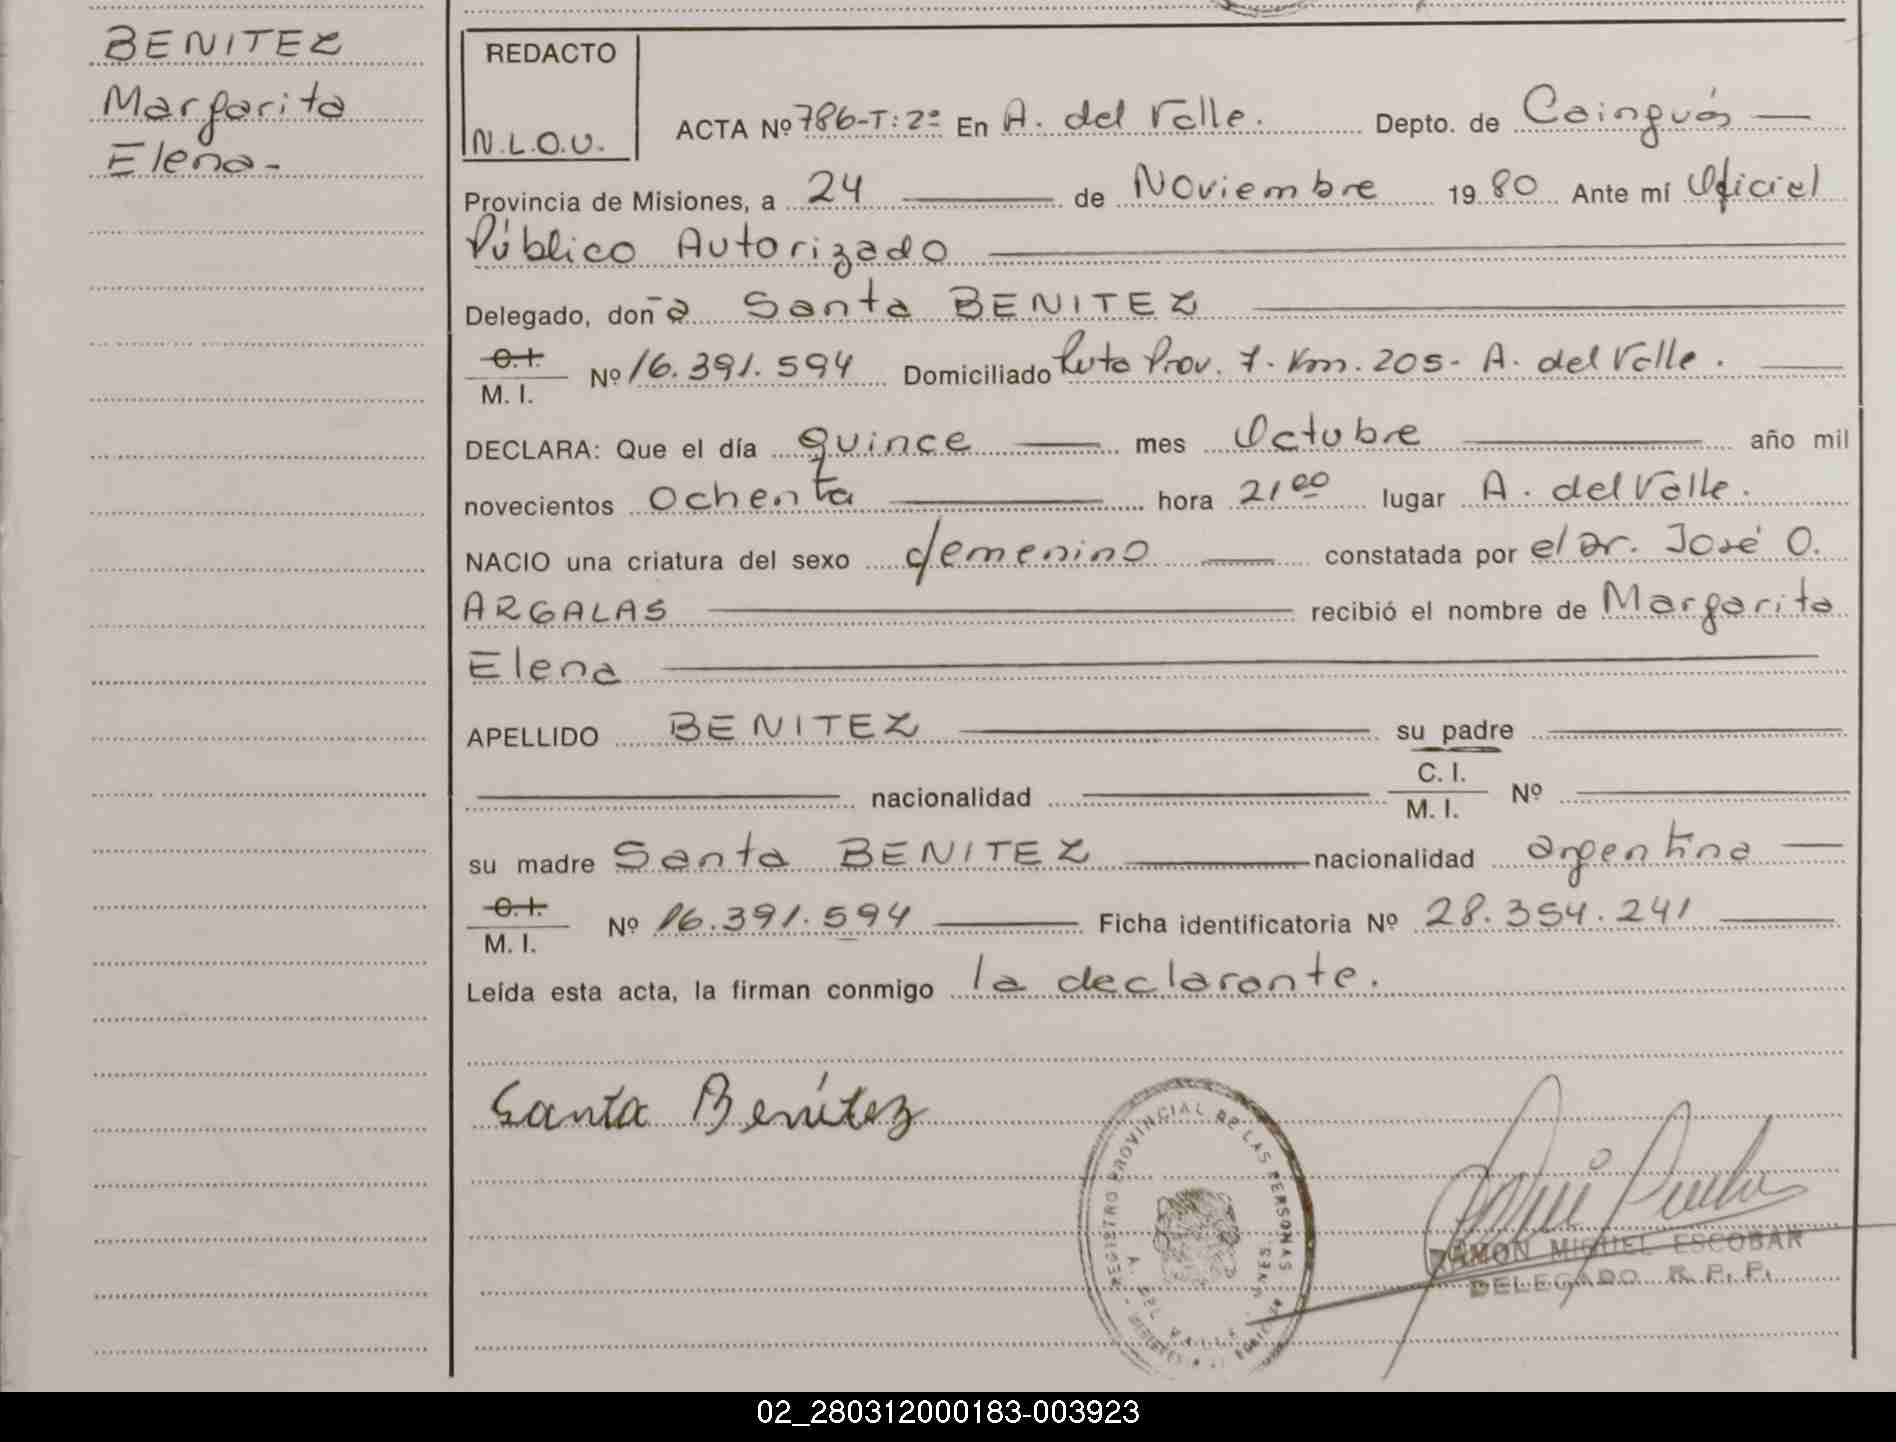 BENITEZ
Margarita
Elena-
REDACTO
N.L.O.U.
ACTA Nº 786-T:2º En A. del Valle. Depto. de Cainguás
Provincia de Misiones, a 24 de Noviembre 1980 Ante mí Oficial
Público Autorizado
Delegado, doña Santa BENITEZ
C.I.
M. I. Nº 16.391.594 Domiciliado Ruta Prov. 7. Km. 205- A. del Valle.
DECLARA: Que el día quince mes Octubre año mil
novecientos Ochenta hora 21 00 lugar A. del Valle.
NACIO una criatura del sexo femenino constatada por el Dr. José O.
ARGALAS recibió el nombre de Margarita
Elena
APELLIDO BENITEZ su padre
nacionalidad C. I.
M. I. Nº
su madre Santa BENITEZ nacionalidad argentina
C.I.
M. I. Nº 16.391.594 Ficha identificatoria Nº 28.354.241
Leída esta acta, la firman conmigo la declarante.
Santa Benítez
REGISTRO PROVINCIAL DE LAS PERSONAS
A. DEL VALLE
RAMON MIGUEL ESCOBAR
DELEGADO R. P. P.
02_280312000183-003923